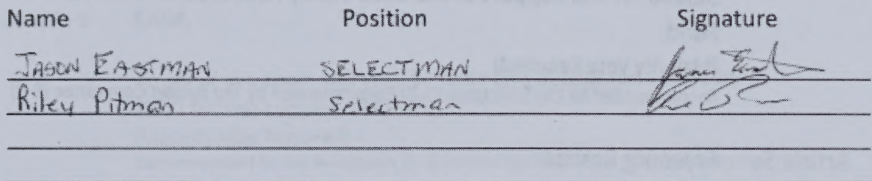 Name Position Signature
JASON EASTMAN SELECTMAN
Riley Pitman Selectman